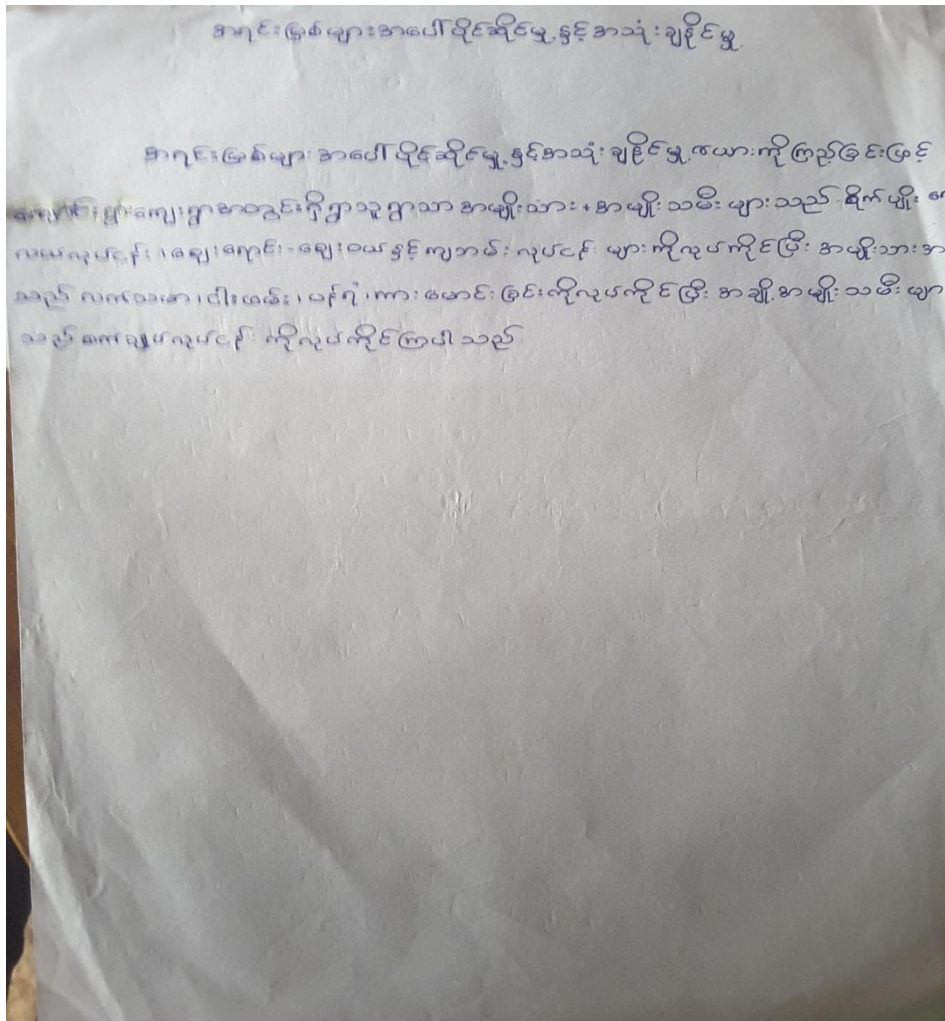 အရင်းမြစ်များအပေါ်ပိုင်ဆိုင်မှု့နှင့်အသုံးချနိုင်မှု့
အရင်းမြစ်များအပေါ်ပိုင်ဆိုင်မှု့နှင့်အသုံးချနိုင်မှု့ဇယားကိုကြည့်ခြင်းဖြင့်
ကျေးရွာအတွင်းရှိရွာသူရွာသား အမျိုးသား + အမျိုးသမီးများသည် စိုက်ပျိုး
လယ်လုပ်ငန်း၊ ဈေးရောင်း-ဈေးဝယ်နှင့်ကျဘမ်းလုပ်ငန်းများကိုလုပ်ကိုင်ပြီး အမျိုးသား
သည် လက်သမော၊ ငါးဖမ်း၊ ပန်ရံ၊ ကားမောင်းခြင်းကိုလုပ်ကိုင်ပြီး အချို့အမျိုးသမီးမျာ
သည်စက်ချုပ်လုပ်ငန်းကိုလုပ်ကိုင်ကြပါသည်